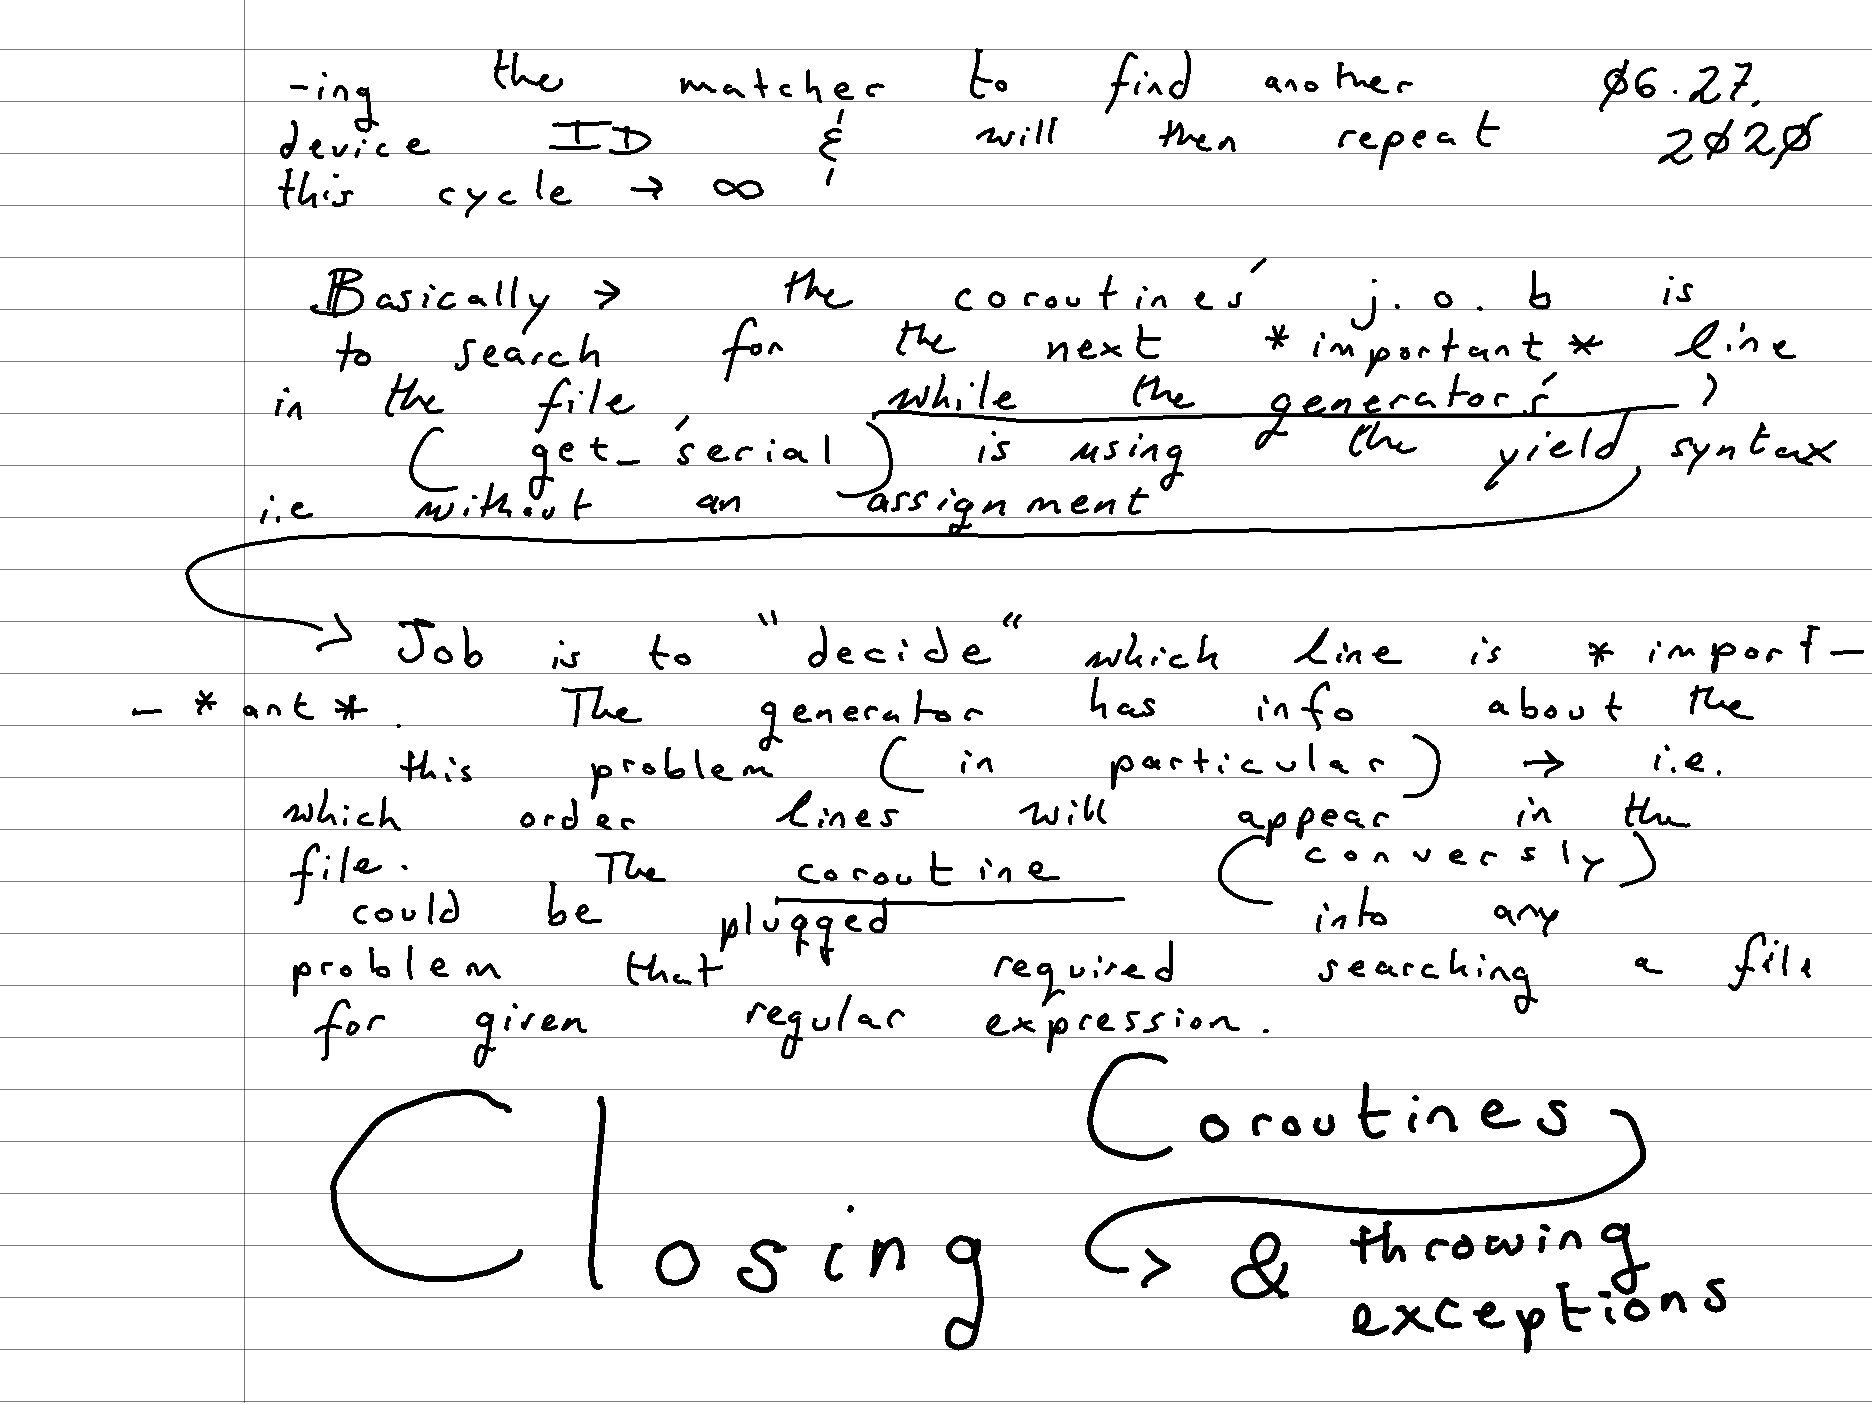 -ing the matcher to find another Ø6.27.
device ID & will then repeat 2Ø2Ø
this cycle → ∞
Basically → the coroutines' j.o.b is
to search for the next *important* line
in the file, while the generator's
(get_serial) is using the yield syntax
i.e without an assignment
→ Job is to "decide" which line is *import-
- *ant*. The generator has info about the
this problem (in particular) → i.e.
which order lines will appear in the
file. The coroutine (conversly)
could be plugged into any
problem that required searching a file
for given regular expression.
Closing Coroutines
→ & throwing
exceptions